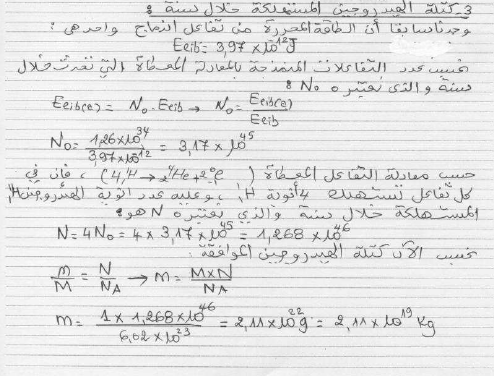 3- كتلة الهيدروجين المستهلكة خلال سنة :
وجدنا سابقا أن الطاقة المحررة من تفاعل اندماج واحد هي :
Eeib = 3,97 x 10^12 J
نحسب عدد التفاعلات المنمذجة بالمعادلة المعطاة التي تحدث خلال
سنة و الذي نعتبره N₀ :
Eeib(e) = N₀ . Eeib → N₀ = Eeib(e) / Eeib
N₀ = 1,26 x 10^34 / 3,97 x 10^12 = 3,17 x 10^45
حسب معادلة التفاعل المعطاة (4 ¹₁H → ⁴₂He + 2 ⁰₁e) ، فإن في
كل تفاعل تستهلك 4 أنوية ¹₁H ، وعليه عدد أنوية الهيدروجين ¹₁H
المستهلكة خلال سنة والذي نعتبره N هو :
N = 4N₀ = 4 x 3,17 x 10^45 = 1,268 x 10^46
نحسب الآن كتلة الهيدروجين الموافقة :
m / M = N / NA → m = M x N / NA
m = 1 x 1,268 x 10^46 / 6,02 x 10^23 = 2,11 x 10^22 g = 2,11 x 10^19 Kg